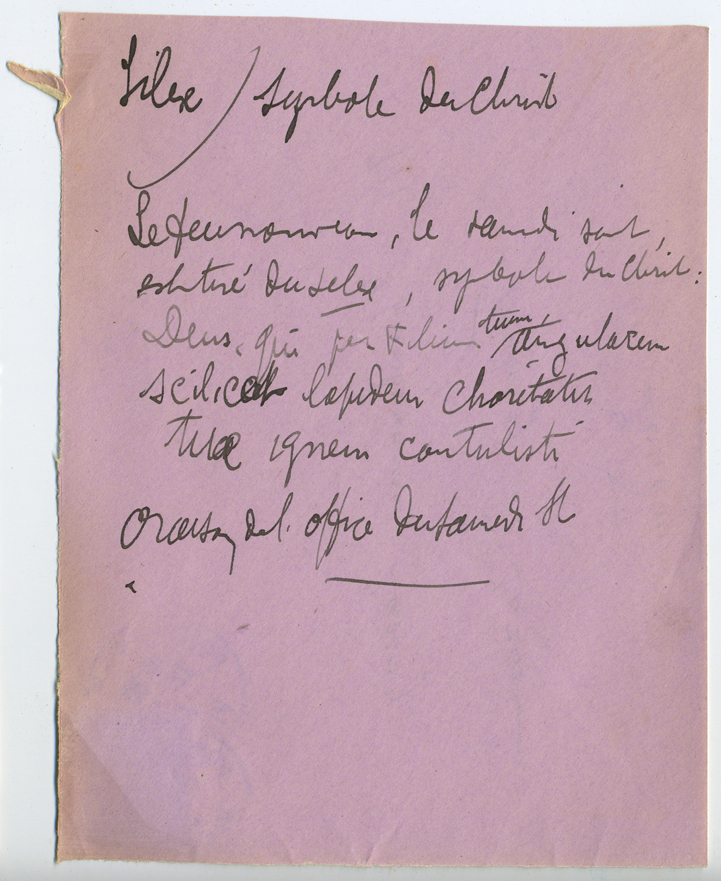 Silex / symbole du Christ
Le feu nouveau, le samedi saint,
est tiré du silex, symbole du Christ :
Deus, qui per Filium tuum, angularem
scilicet lapidem charitatis
tuæ ignem contulisti
Oraison de l'office du samedi St